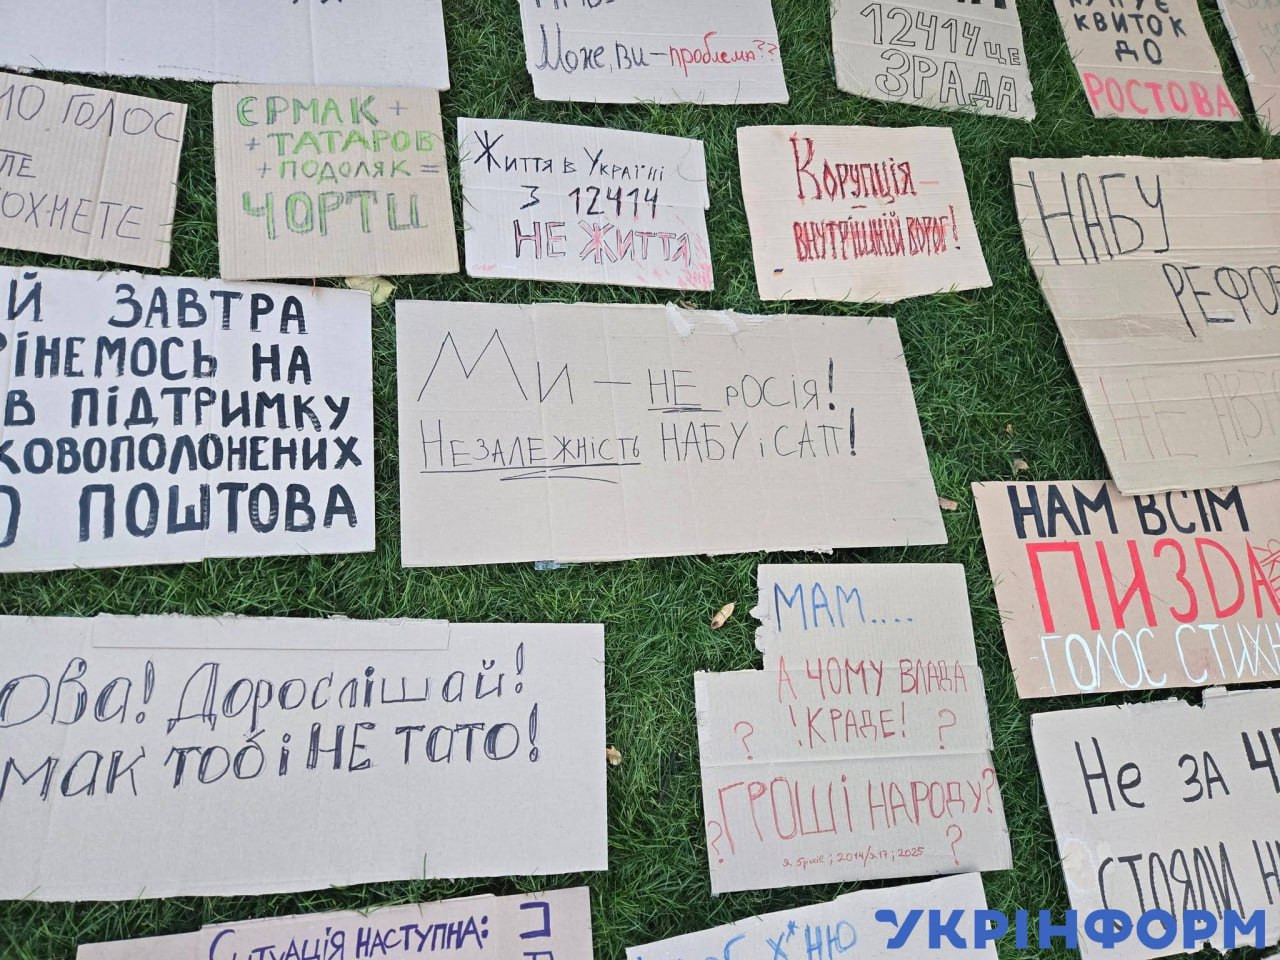 Може, ви — проблема??
12414 ЦЕ
ЗРАДА
КВИТОК
ДО
РОСТОВА
ГОЛОС
ЄРМАК +
+ ТАТАРОВ
+ ПОДОЛЯК =
ЧОРТЦ
Життя в Україні
З 12414
НЕ ЖИТТЯ
Корупція —
внутрішній ворог!
НАБУ
РЕФО
НЕ АВТ
Й ЗАВТРА
РІНЕМОСЬ НА
В ПІДТРИМКУ
КОВОПОЛОНЕНИХ
ПОШТОВА
Ми — НЕ росія!
НЕЗАЛЕЖНІСТЬ НАБУ і САП!
НАМ ВСІМ
ПИЗДА
ГОЛОС СТИХН
МАМ....
А ЧОМУ ВЛАДА
! КРАДЕ!
? ?
ГРОШІ НАРОДУ?
? ?
ова! Дорослішай!
мак тобі НЕ тато!
Не за че
стояли н
Ситуація наступна:
х*ню
УКРІНФОРМ